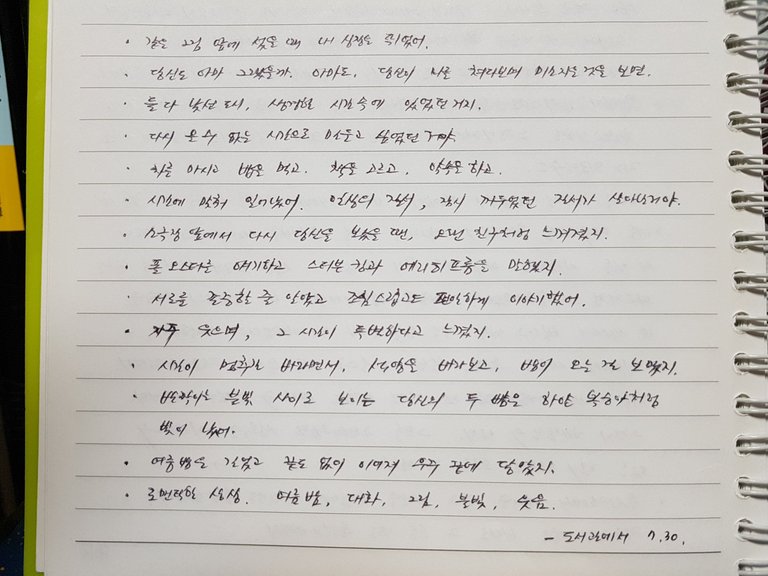 · 같은 그림 앞에 섰을 때 내 심장은 뛰었어.
· 당신도 아마 그랬을까. 아마도, 당신이 나를 쳐다보며 미소지은 것을 보면.
· 둘 다 낯선 도시, 생경한 시간 속에 있었던 거지.
· 다시 올 수 없는 시간으로 만들고 싶었던 거야.
· 차를 마시고 밥을 먹고. 책을 고르고, 약속을 하고.
· 시간에 맞춰 일어났어. 일상의 질서, 잠시 꺼두었던 질서가 살아난거야.
· 소극장 앞에서 다시 당신을 보았을 땐, 오랜 친구처럼 느껴졌지.
· 폴 오스터를 얘기하고 스티븐 킹과 에리히프롬을 말했지.
· 서로를 존중할 줄 알았고 조심스럽고도 편안하게 이야기했어.
· 자주 웃으며, 그 시간이 특별하다고 느꼈지.
· 시간이 멈추길 바라면서, 석양을 바라보고, 밤이 오는 걸 보았지.
· 반짝이는 불빛 사이로 보이는 당신의 두 뺨은 하얀 복숭아처럼
빛이 났어.
· 여름밤은 길었고 끝도 없이 이어져 우주 끝에 닿았지.
· 로맨틱한 상상. 여름 밤, 대화, 그림, 불빛, 웃음.
- 도서관에서 7.30.